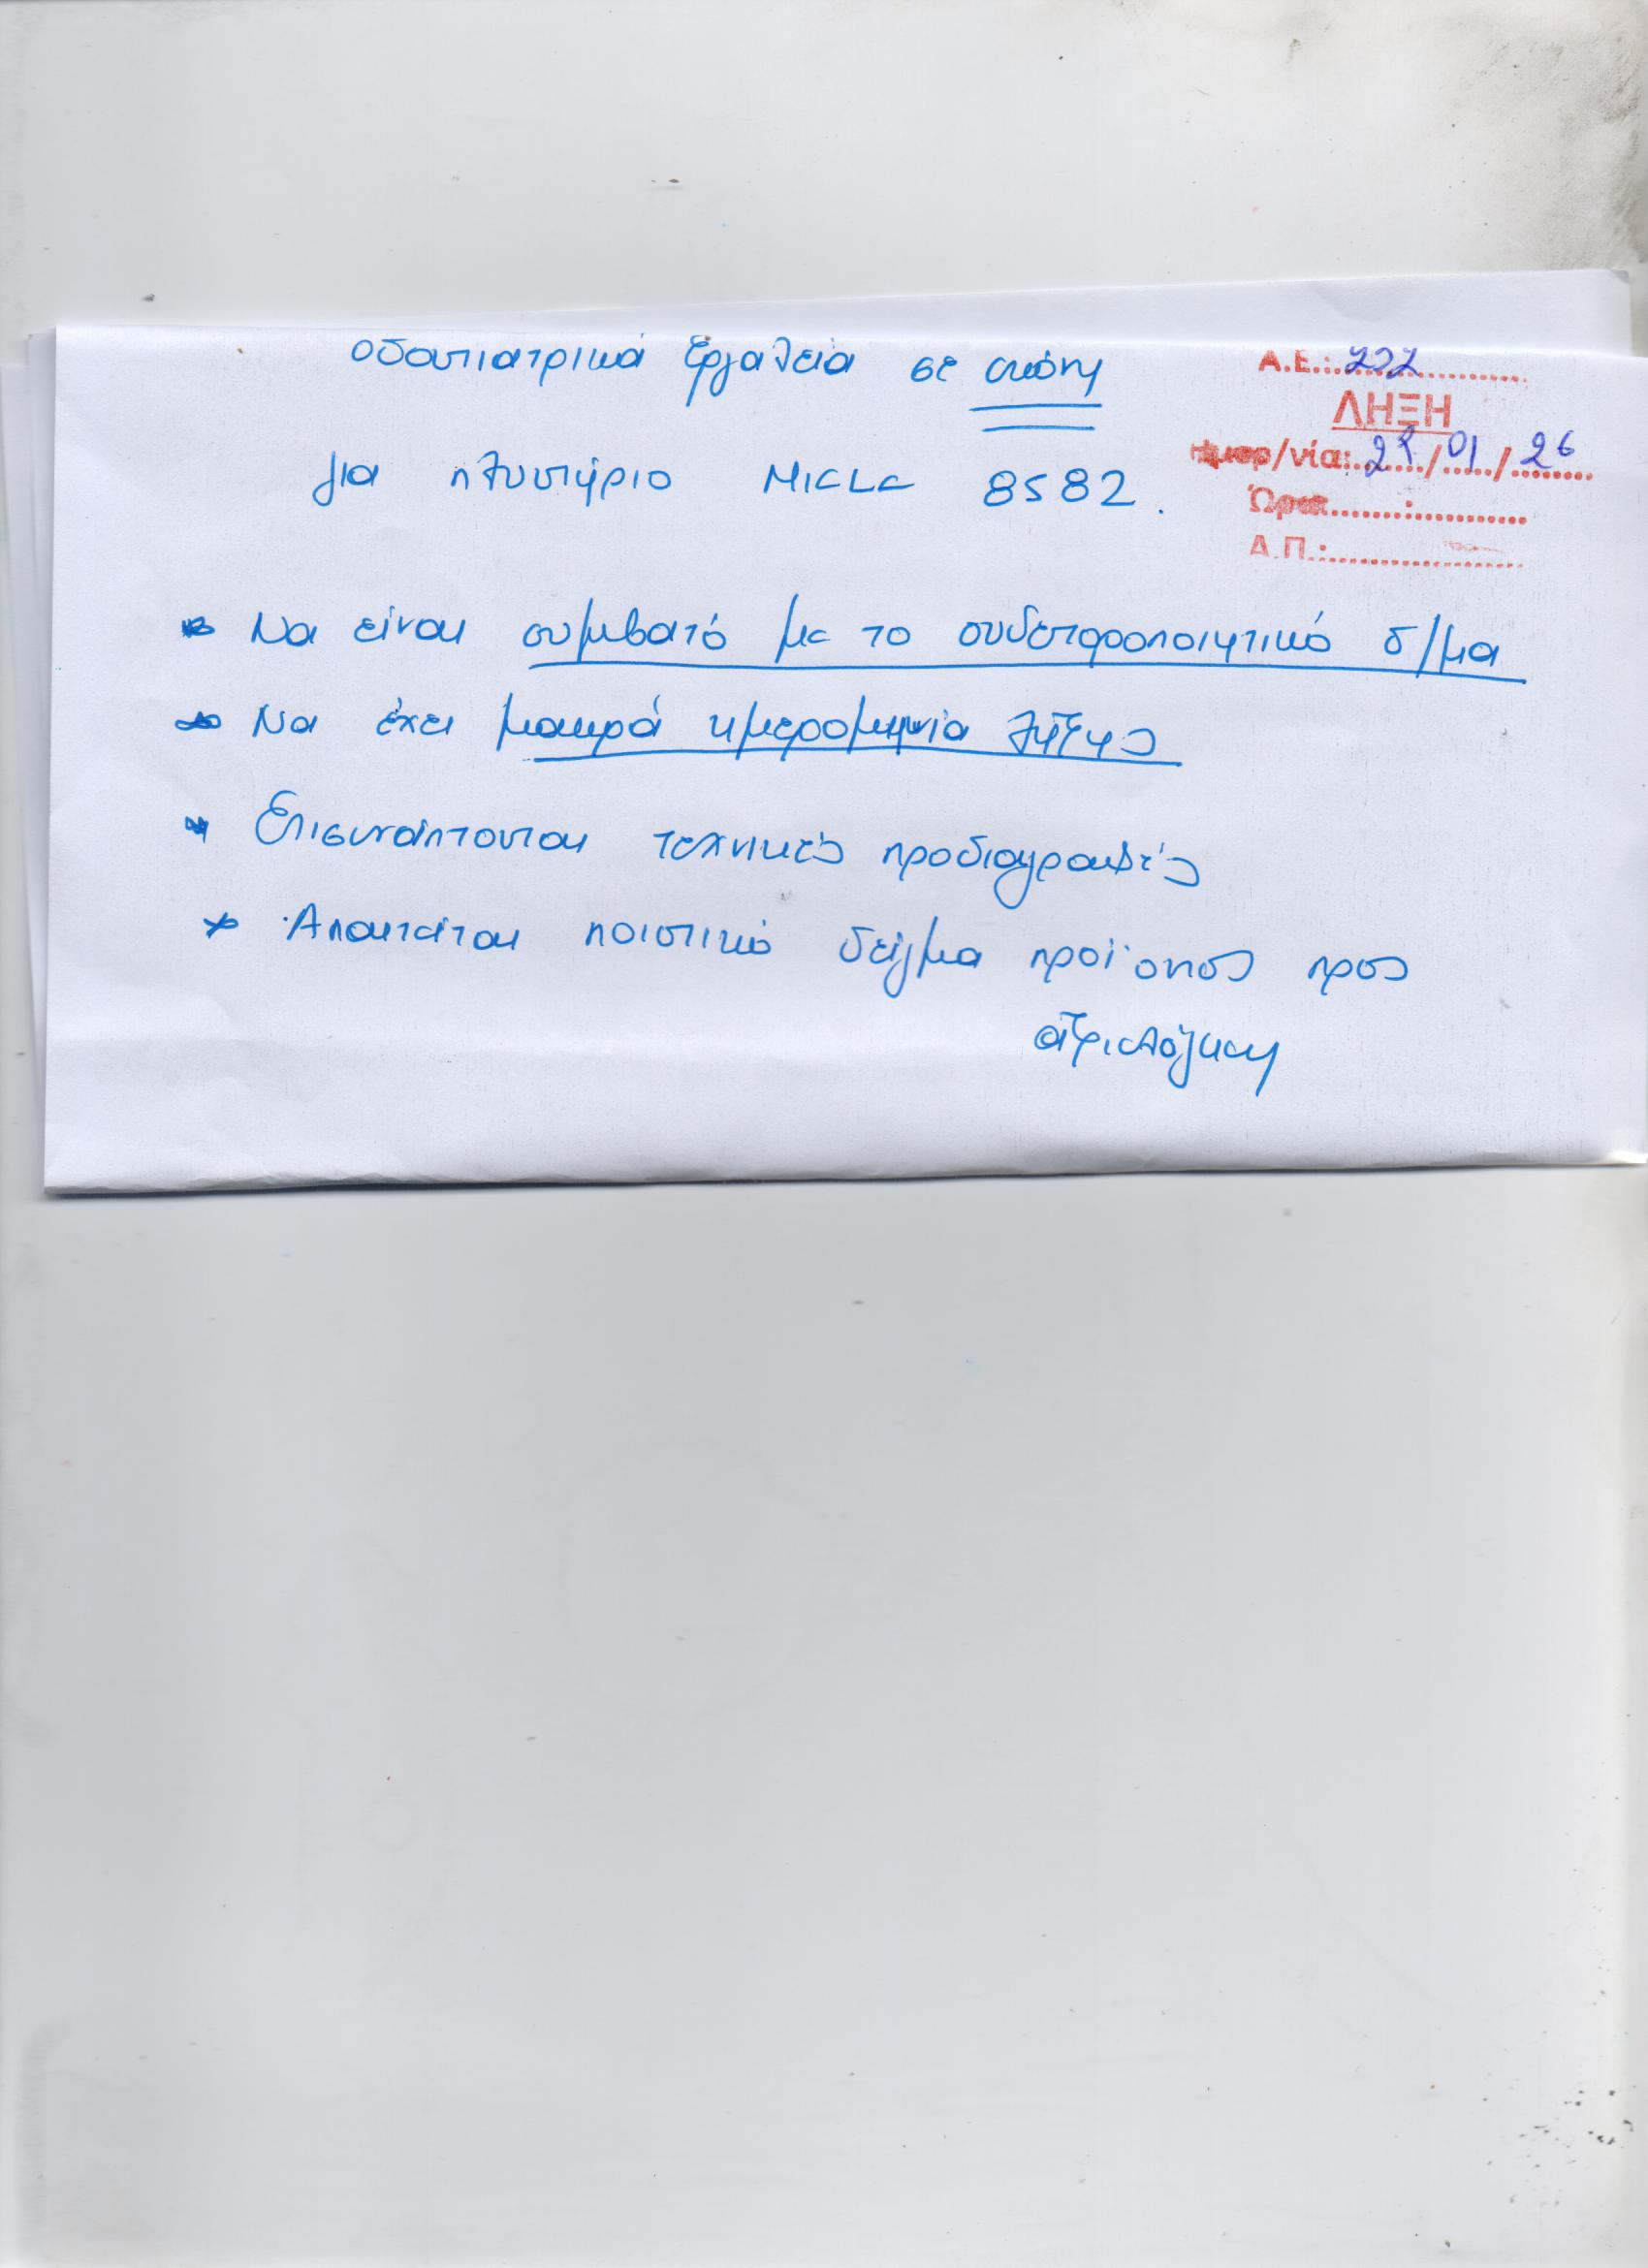 οδοντιατρικά εργαλεία σε σκόνη
για πλυντήριο MIELE 8582.
Α.Ε.: 202
ΛΗΞΗ
Ημερ/νία: 29/01/26
Ώρα:
Α.Π.:
* Να είναι συμβατό με το ουδετεροποιητικό δ/μα
* Να έχει μακρά ημερομηνία λήξης
* Επισυνάπτονται τεχνικές προδιαγραφές
* Απαιτείται ποιοτικό δείγμα προϊόντος προς
αξιολόγηση